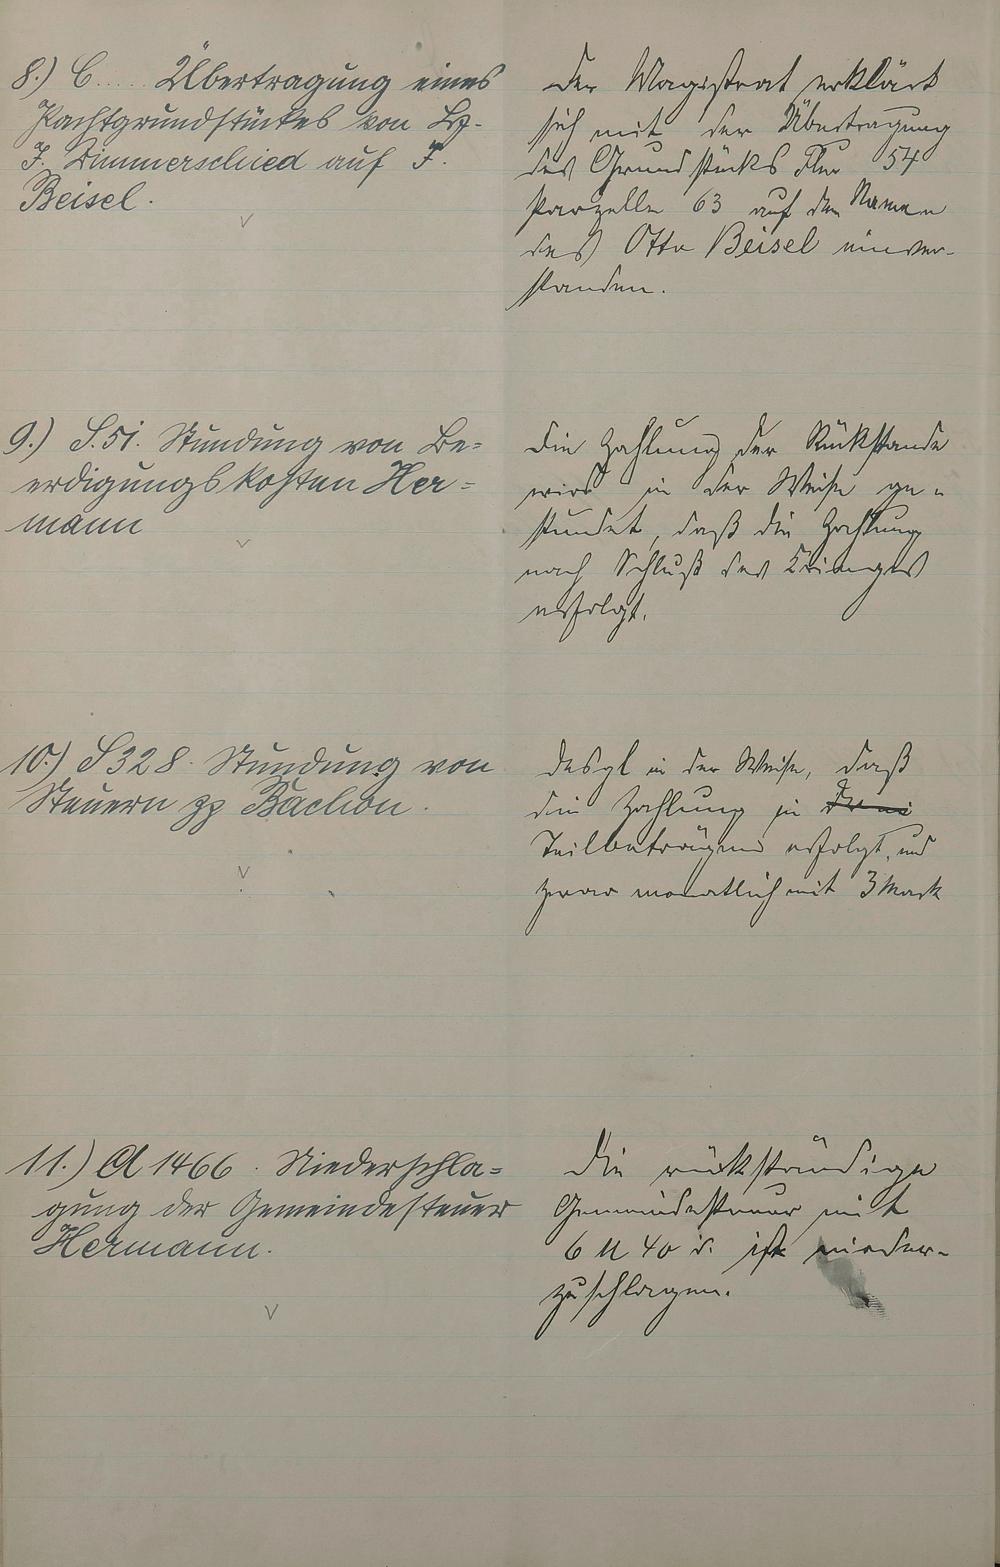 8.) C..... Übertragung eines
Pachtgrundstückes von Lz.
J. Zimmerschied auf J.
Beisel.
Der Magistrat erklärt
sich mit der Übertragung
des Grundstücks Flur 54
Parzelle 63 auf den Namen
des Otto Beisel einver-
standen.
9.) S.51. Stundung von Be=
erdigungskosten Her=
mann
Die Zahlung der Rückstände
wird in der Weise ge=
stundet, daß die Zahlung
nach Schluß des Krieges
erfolgt.
10.) S 328. Stundung von
Steuern zz Bachon.
desgl in der Weise, daß
die Zahlung in
Teilbeträgen erfolgt, und
zwar monatlich mit 3 Mark
11.) A 1466. Niederschla=
gung der Gemeindesteuer
Hermann.
Die rückständige
Gemeindesteuer mit
6 M 40 d. ist nieder-
zuschlagen.